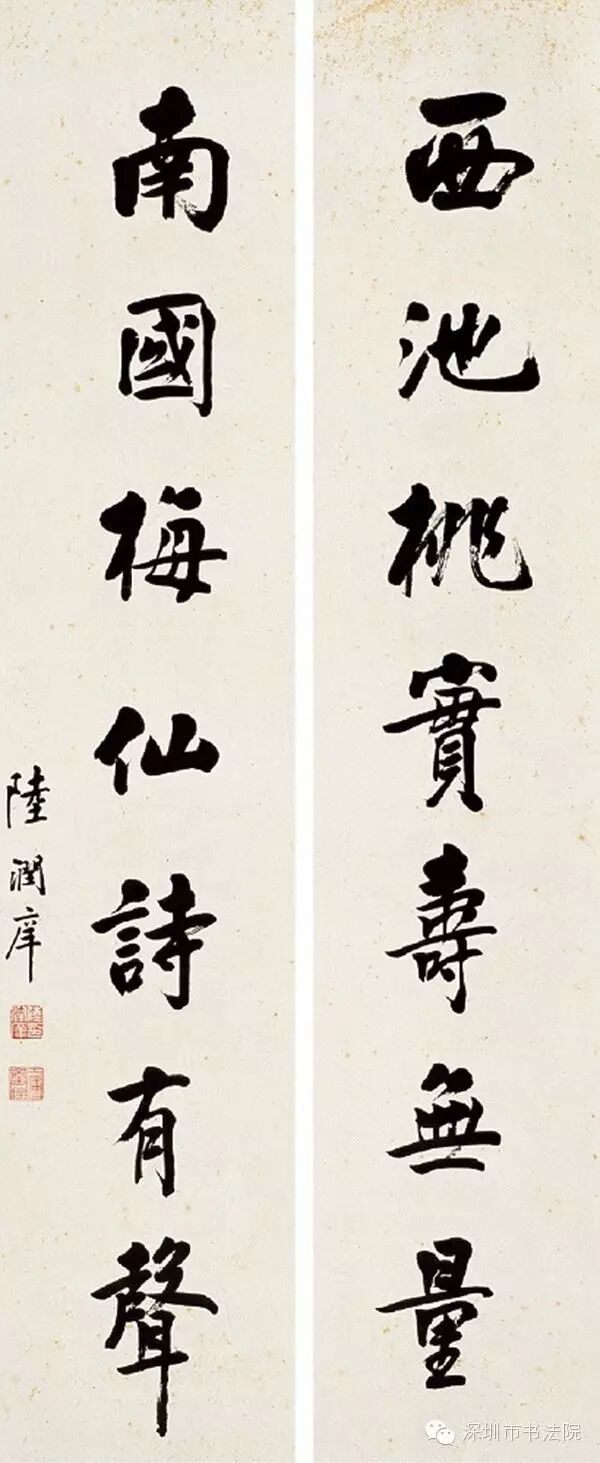 西池桃實壽無量
南國梅仙詩有聲
陸潤庠
深圳市书法院